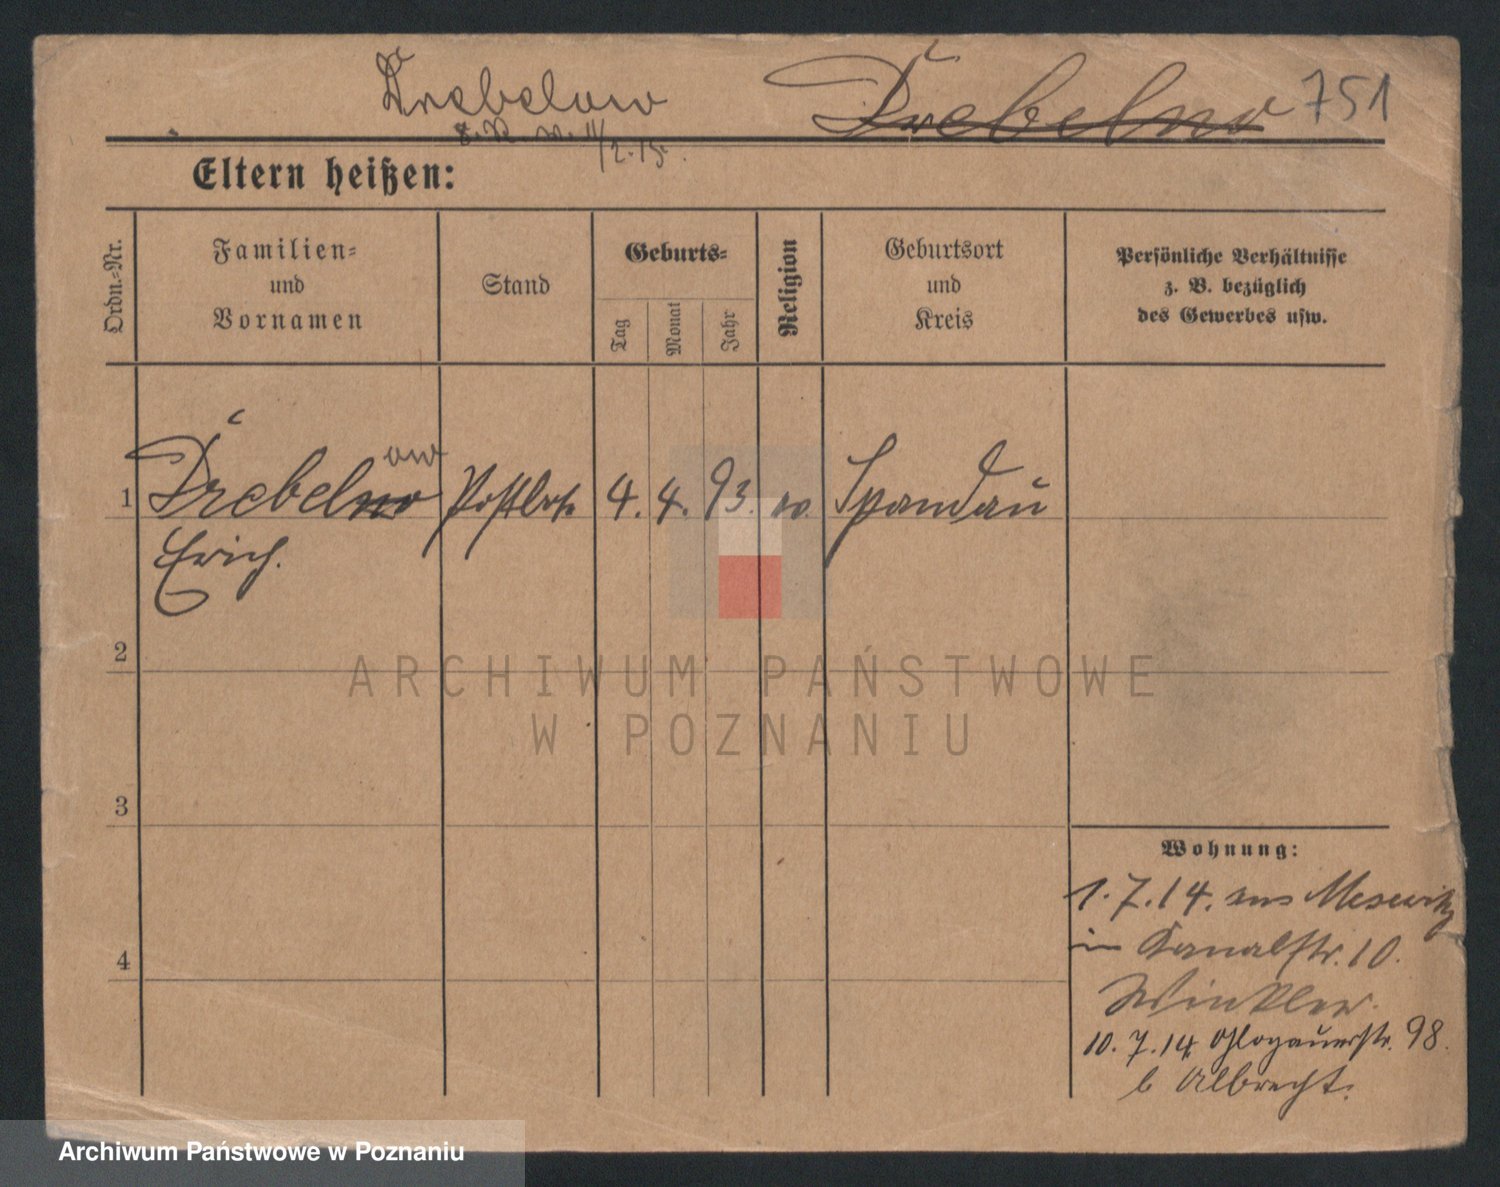 Drebelow
Drebelno 751
z. P. v. 11/2.15.
Eltern heißen:
Ordn.-Nr.
Familien-
und
Vornamen
Stand
Geburts-
Tag
Monat
Jahr
Religion
Geburtsort
und
Kreis
Persönliche Verhältnisse
z. B. bezüglich
des Gewerbes usw.
ow
1 Drebelno Postbot. 4. 4. 93. ev. Spandau
Erich.
2
3
4
Wohnung:
1.7.14. aus Meseritz
in Kanalstr. 10.
Winkler.
10.7.14 Glogauerstr. 98.
b Albrecht.
ARCHIWUM PAŃSTWOWE
W POZNANIU
Archiwum Państwowe w Poznaniu